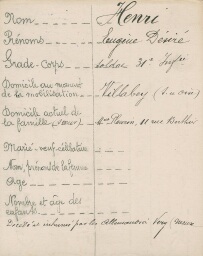 Nom Henri
Prénoms Eugène Désiré
Grade-Corps soldat 31e Infrie
Domicile au moment
de la mobilisation
Domicile actuel de
la famille 11 rue
Marié-veuf-célibataire
Nom, prénoms de la femme
Age
Nombre et âge des
enfants
Décédé et inhumé par les Allemands